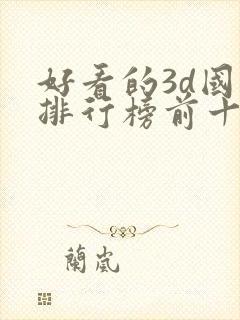 好看的3d國
排行榜前十
蘭嵐